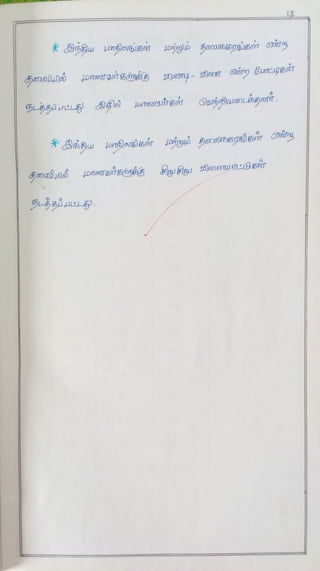 13
* இந்திய மாநிலங்கள் மற்றும் தலைநகரங்கள் என்ற
தலைப்பில் மாணவர்களுக்கு வினாடி - வினா என்ற போட்டிகள்
நடத்தப்பட்டது. இதில் மாணவர்கள் வெற்றியடைந்தனர்.
* இந்திய மாநிலங்கள் மற்றும் தலைநகரங்கள் என்ற
தலைப்பில் மாணவர்களுக்கு சிறு சிறு விளையாட்டுகள்
நடத்தப்பட்டது.